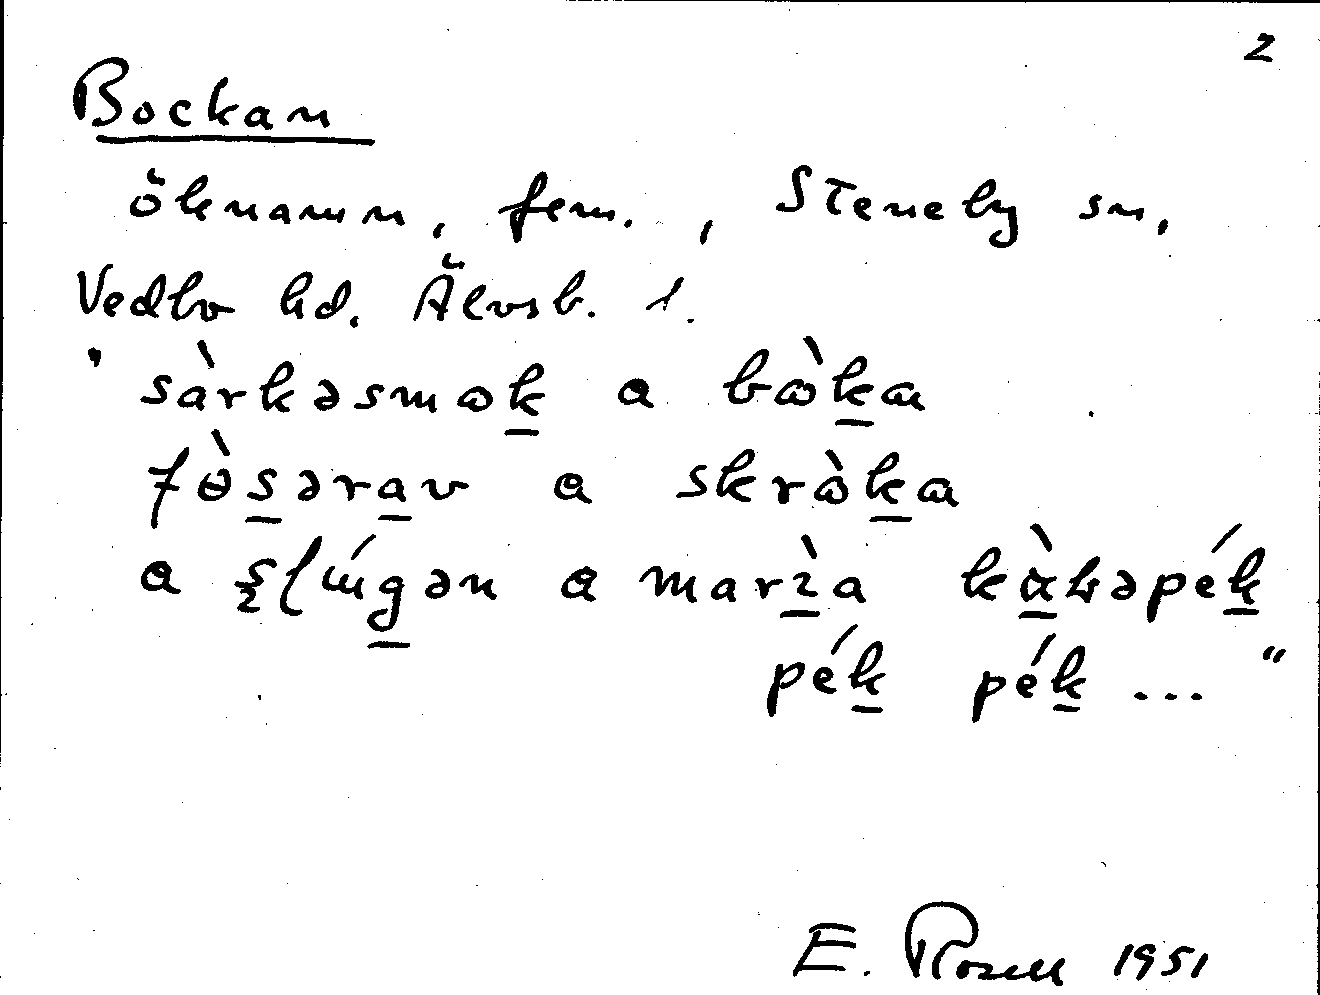 2
Bockan
öknamn, fem., Steneby sn,
Vedbo hd. Älvsb. l.
"sàrkəsmɷk̲ a bɷ̀k̲a
fɵ̀s̲əra̲v a skrɷ̀k̲a
a ən a marı̲̀a pék̲
pék̲ pék̲ ..."
E. Rosell 1951